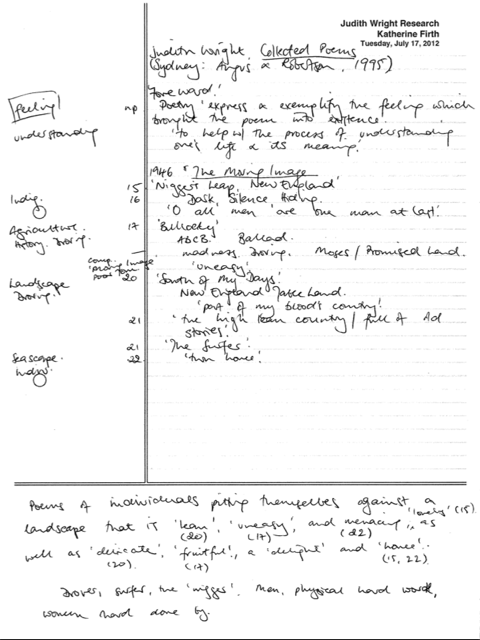 Judith Wright Research
Katherine Firth
Tuesday, July 17, 2012
Judith Wright Collected Poems
(Sydney: Angus & Robertson, 1995)
Foreward.
feeling np Poetry 'express & exemplify the feeling which
brought the poem into existence.
understanding 'to help w/ the process of understanding
one's life & its meaning.'
1946 'The Moving Image
15 'Nigger's Leap, New England'
Indig. 16 Dark, Silence
'O all men are one man at last.'
Agriculture. 17 'Bullocky'
ABCB. Ballad.
madness Droving. Moses / Promised Land.
'uneasy'
Landscape 20 'South of My Days'
Droving. New England Table Land.
'part of my blood's country'
21 'the high lean country / full of old
stories'
21 'The Surfer'
Seascape. 22 'turn home'.
Poems of individuals pitting themselves against a
'lonely' (15)
landscape that is 'lean', 'uneasy', and menacing, as
(20) (17) (22)
well as 'delicate', 'fruitful', a 'delight' and 'home'.
(20) (17) (15, 22)
Drover, surfer, the 'nigger'. Men, physical hard work,
women hard done by.